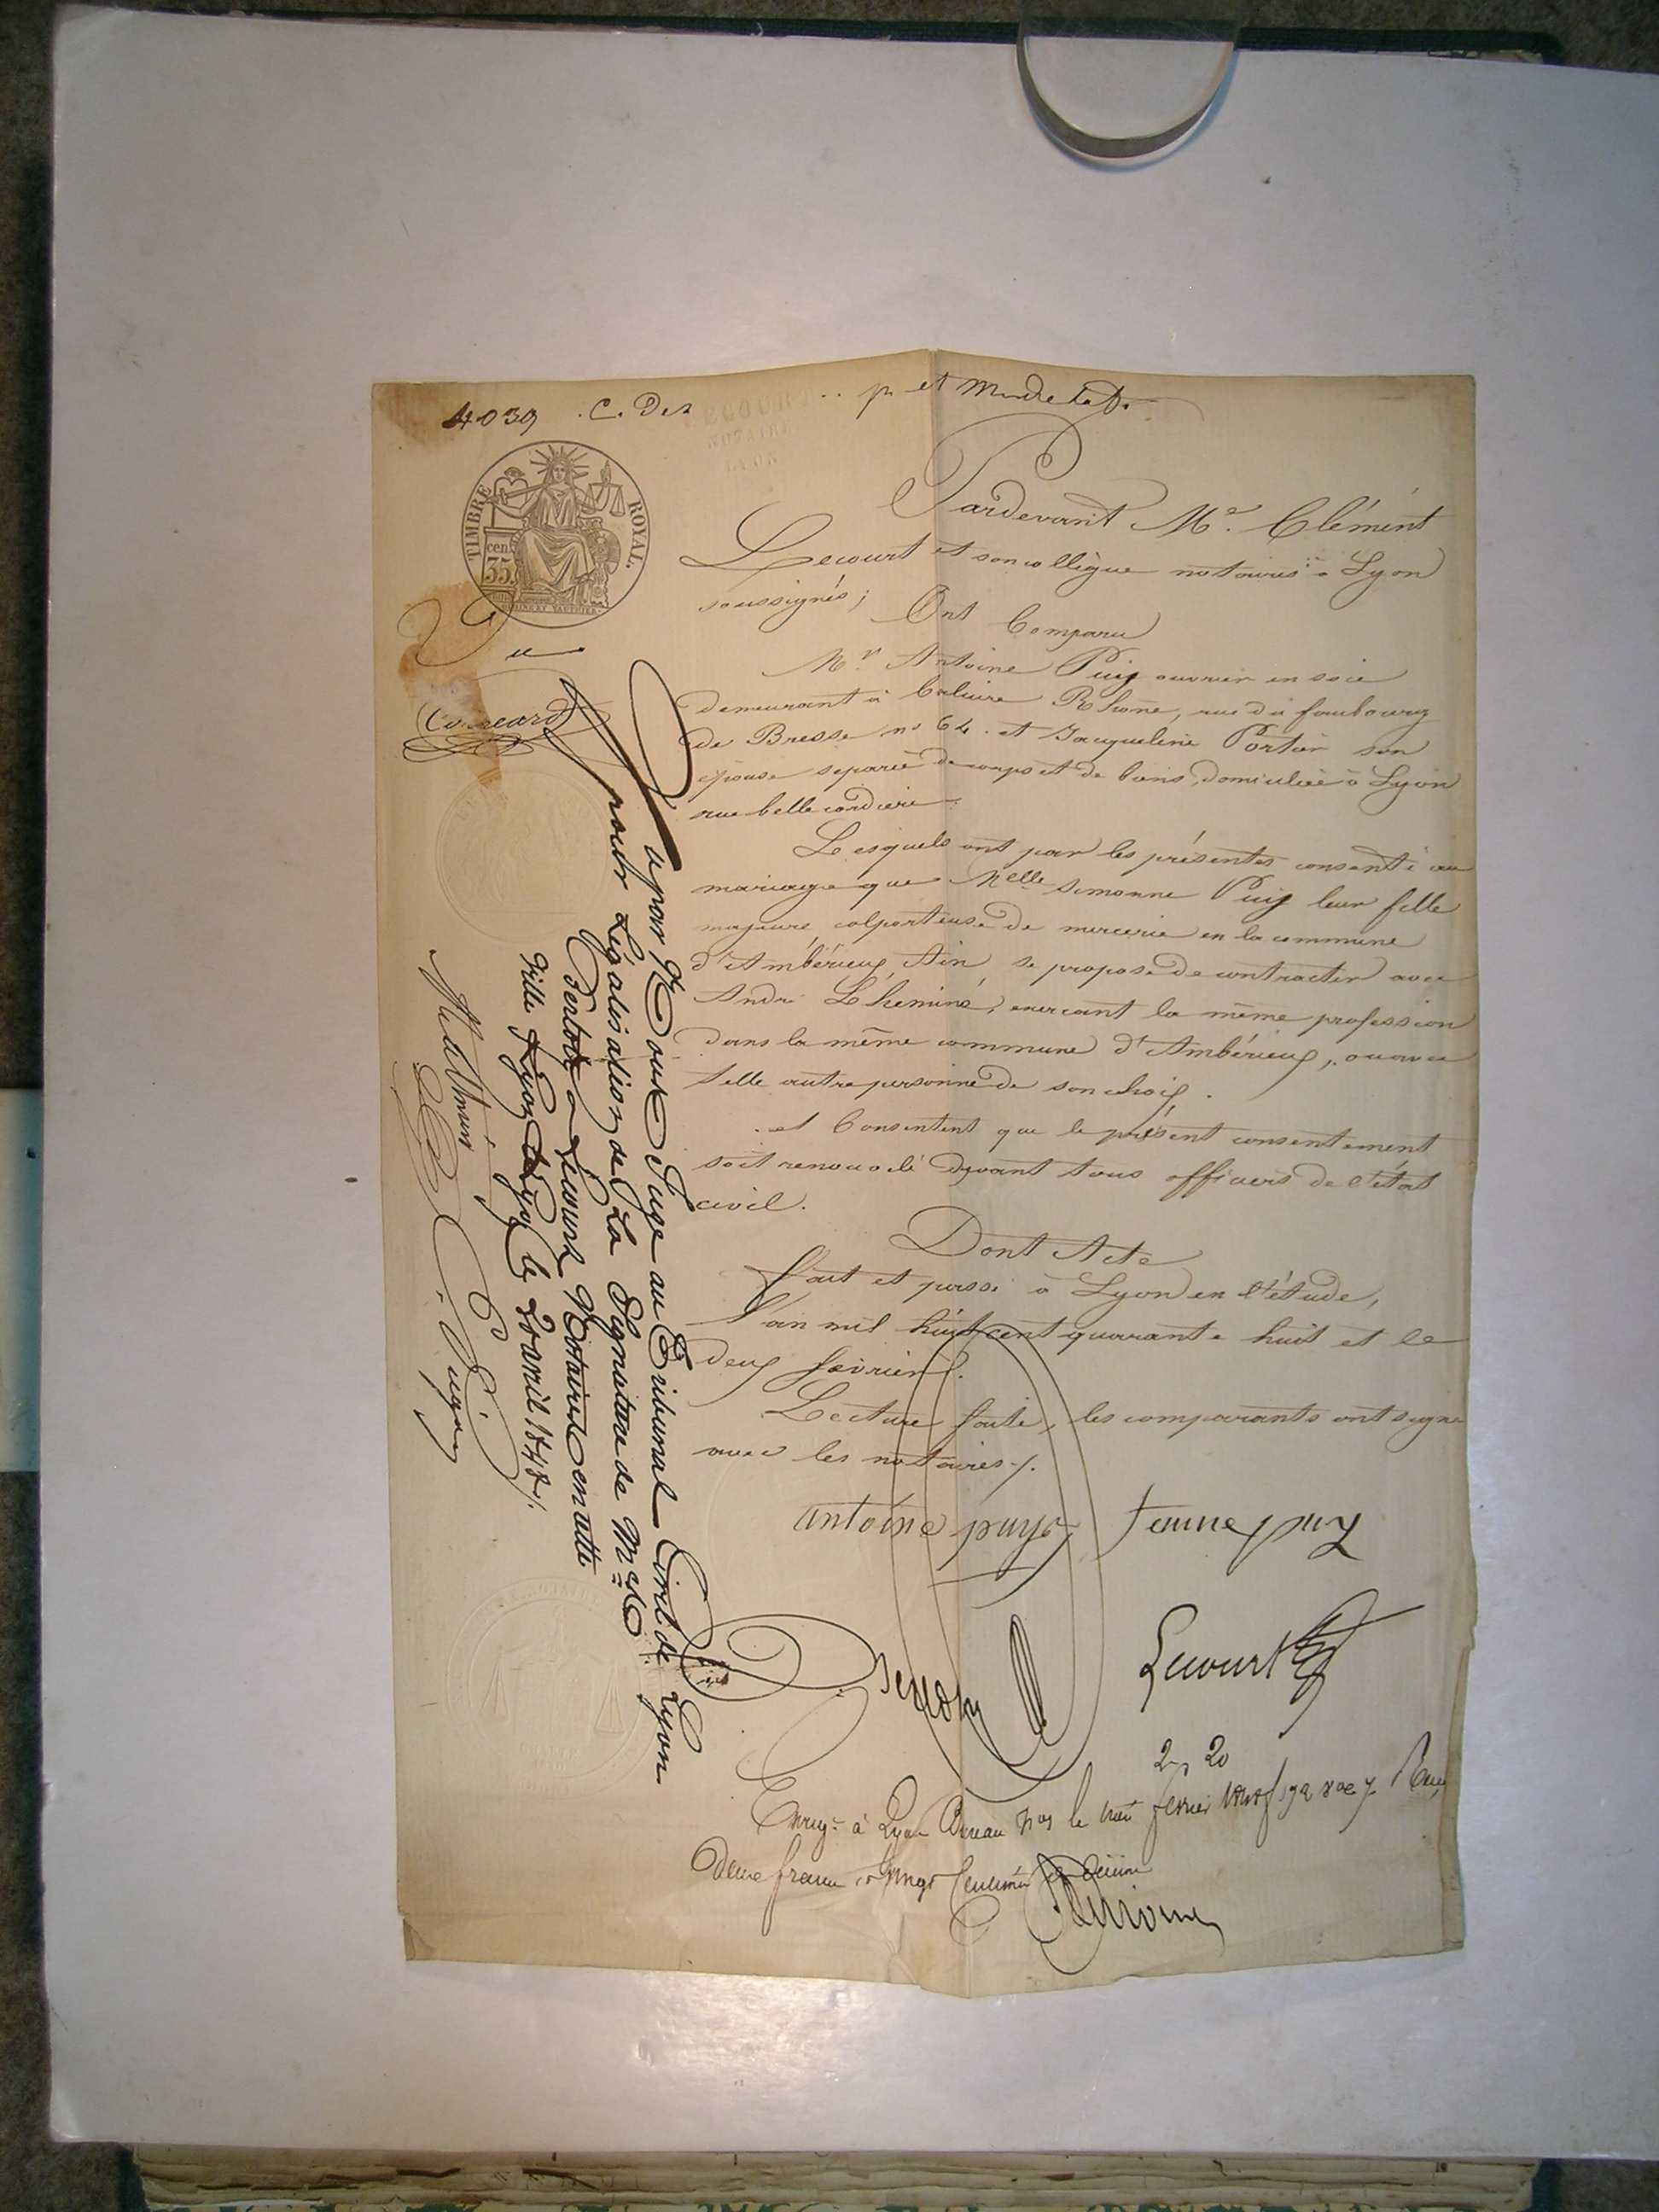 4039
TIMBRE ROYAL.
cen.
35
LECOURT
NOTAIRE
LYON
Pardevant Me. Clément
Lecourt et son collègue notaires à Lyon
soussignés;
Ont Comparu
Mr Antoine Puig ouvrier en soie
demeurant à Caluire Rhone, rue du faubourg
de Bresse no 64. et Jacqueline Portier son
épouse separée de corps et de biens, domiciliée à Lyon
rue belle cordiere.
Lesquels ont par les présentes consenti au
mariage que Melle Simonne Puig leur fille
majeure, colporteuse de mercerie en la commune
d'Ambérieux, Ain, se propose de contracter avec
André Lheminé, exercant la même profession
dans la même commune d'Ambérieux, ou avec
telle autre personne de son choix.
et Consentent que le présent consentement
soit renouvelé devant tous officiers de l'état
civil.
Dont Acte
fait et passé à Lyon en l'étude,
l'an mil huit cent quarante huit et le
deux février.
Lecture faite, les comparants ont signé
avec les notaires./.
antoine puys femme puy
Lecourt
2 20
Enregé à Lyon Bureau le huit février
deux francs vingt centimes
Vu
Vu par Nous Juge au Tribunal Civil de Lyon
pour Légalisation de La Signature de Mes
Berloty & Lecourt Notaires en cette
Ville Lyon le 20 avril 1848.